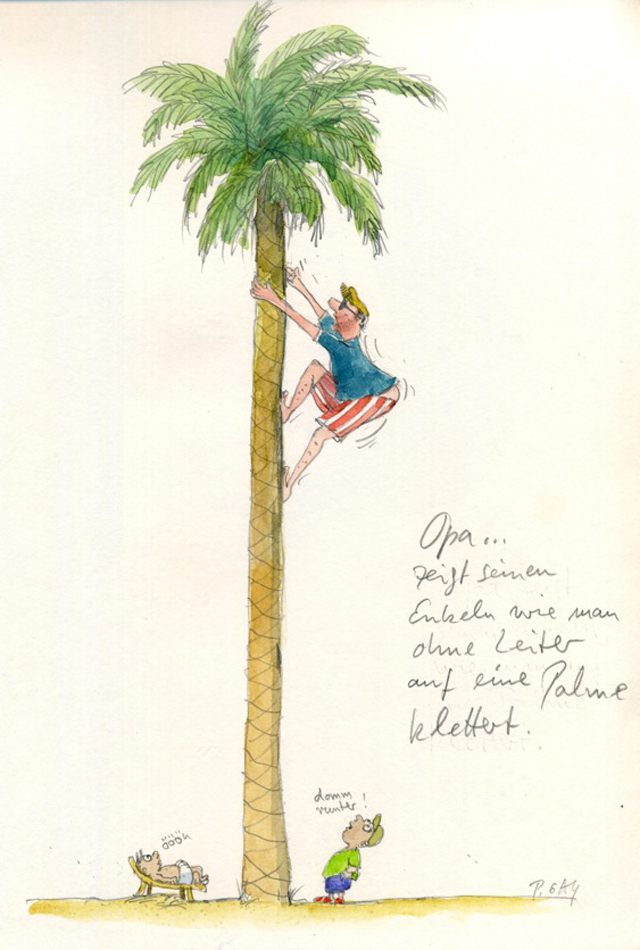 Opa...
zeigt seinen
Enkeln wie man
ohne Leiter
auf eine Palme
klettert.
domm
runter!
öööh
P. GAY